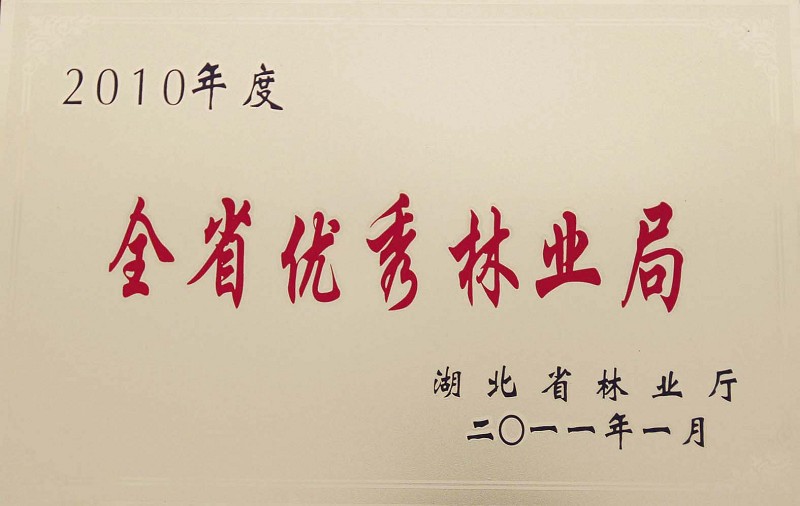 2010年度
全省优秀林业局
湖北省林业厅
二〇一一年一月